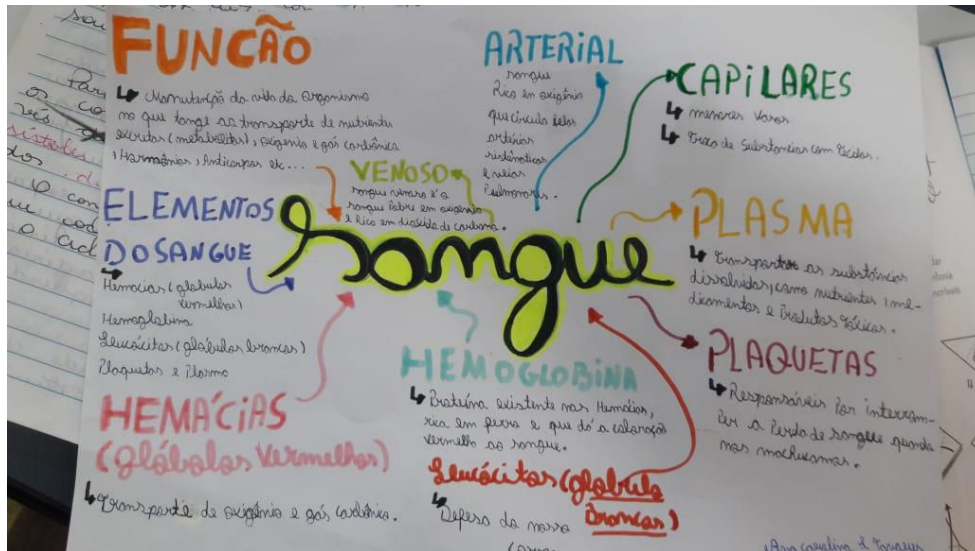 FUNCÃO
↳ Manutenção da vida do organismo
no que tange ao transporte de nutrientes
excretas (metabolitos), oxigênio e gás carbônico
, Hormônios, Anticorpos etc...
ARTERIAL
sangue
Rico em oxigênio
que circula pelas
artérias
sistêmicas
e veias
Pulmonares.
CAPILARES
↳ menores vasos
↳ Troca de substancias com tecidos.
VENOSO
sangue venoso é o
sangue Pobre em oxigênio
e Rico em dioxido de carbono.
ELEMENTOS
DO SANGUE
Hemacias (globulos
vermelhos)
Hemoglobina
Leucócitos (glóbulos brancos)
Plaquetas e Plasma
Sangue
PLASMA
↳ Transportar as substâncias
dissolvidas, como nutrientes, me-
dicamentos e Produtos tóxicos.
PLAQUETAS
↳ Responsáveis Por interrom-
Per a Perda de sangue quando
nos machucamos.
HEMÁCIAS
(glóbolos Vermelhos)
↳ Transporte de oxigênio e gás carbônico.
HEMOGLOBINA
↳ Proteína existente nas Hemácias,
rica em ferro e que dá a coloração
vermelho ao sangue.
Leucócitos (globulo
Brancos)
↳ Defesa do nosso
Ana carolina L Tavares